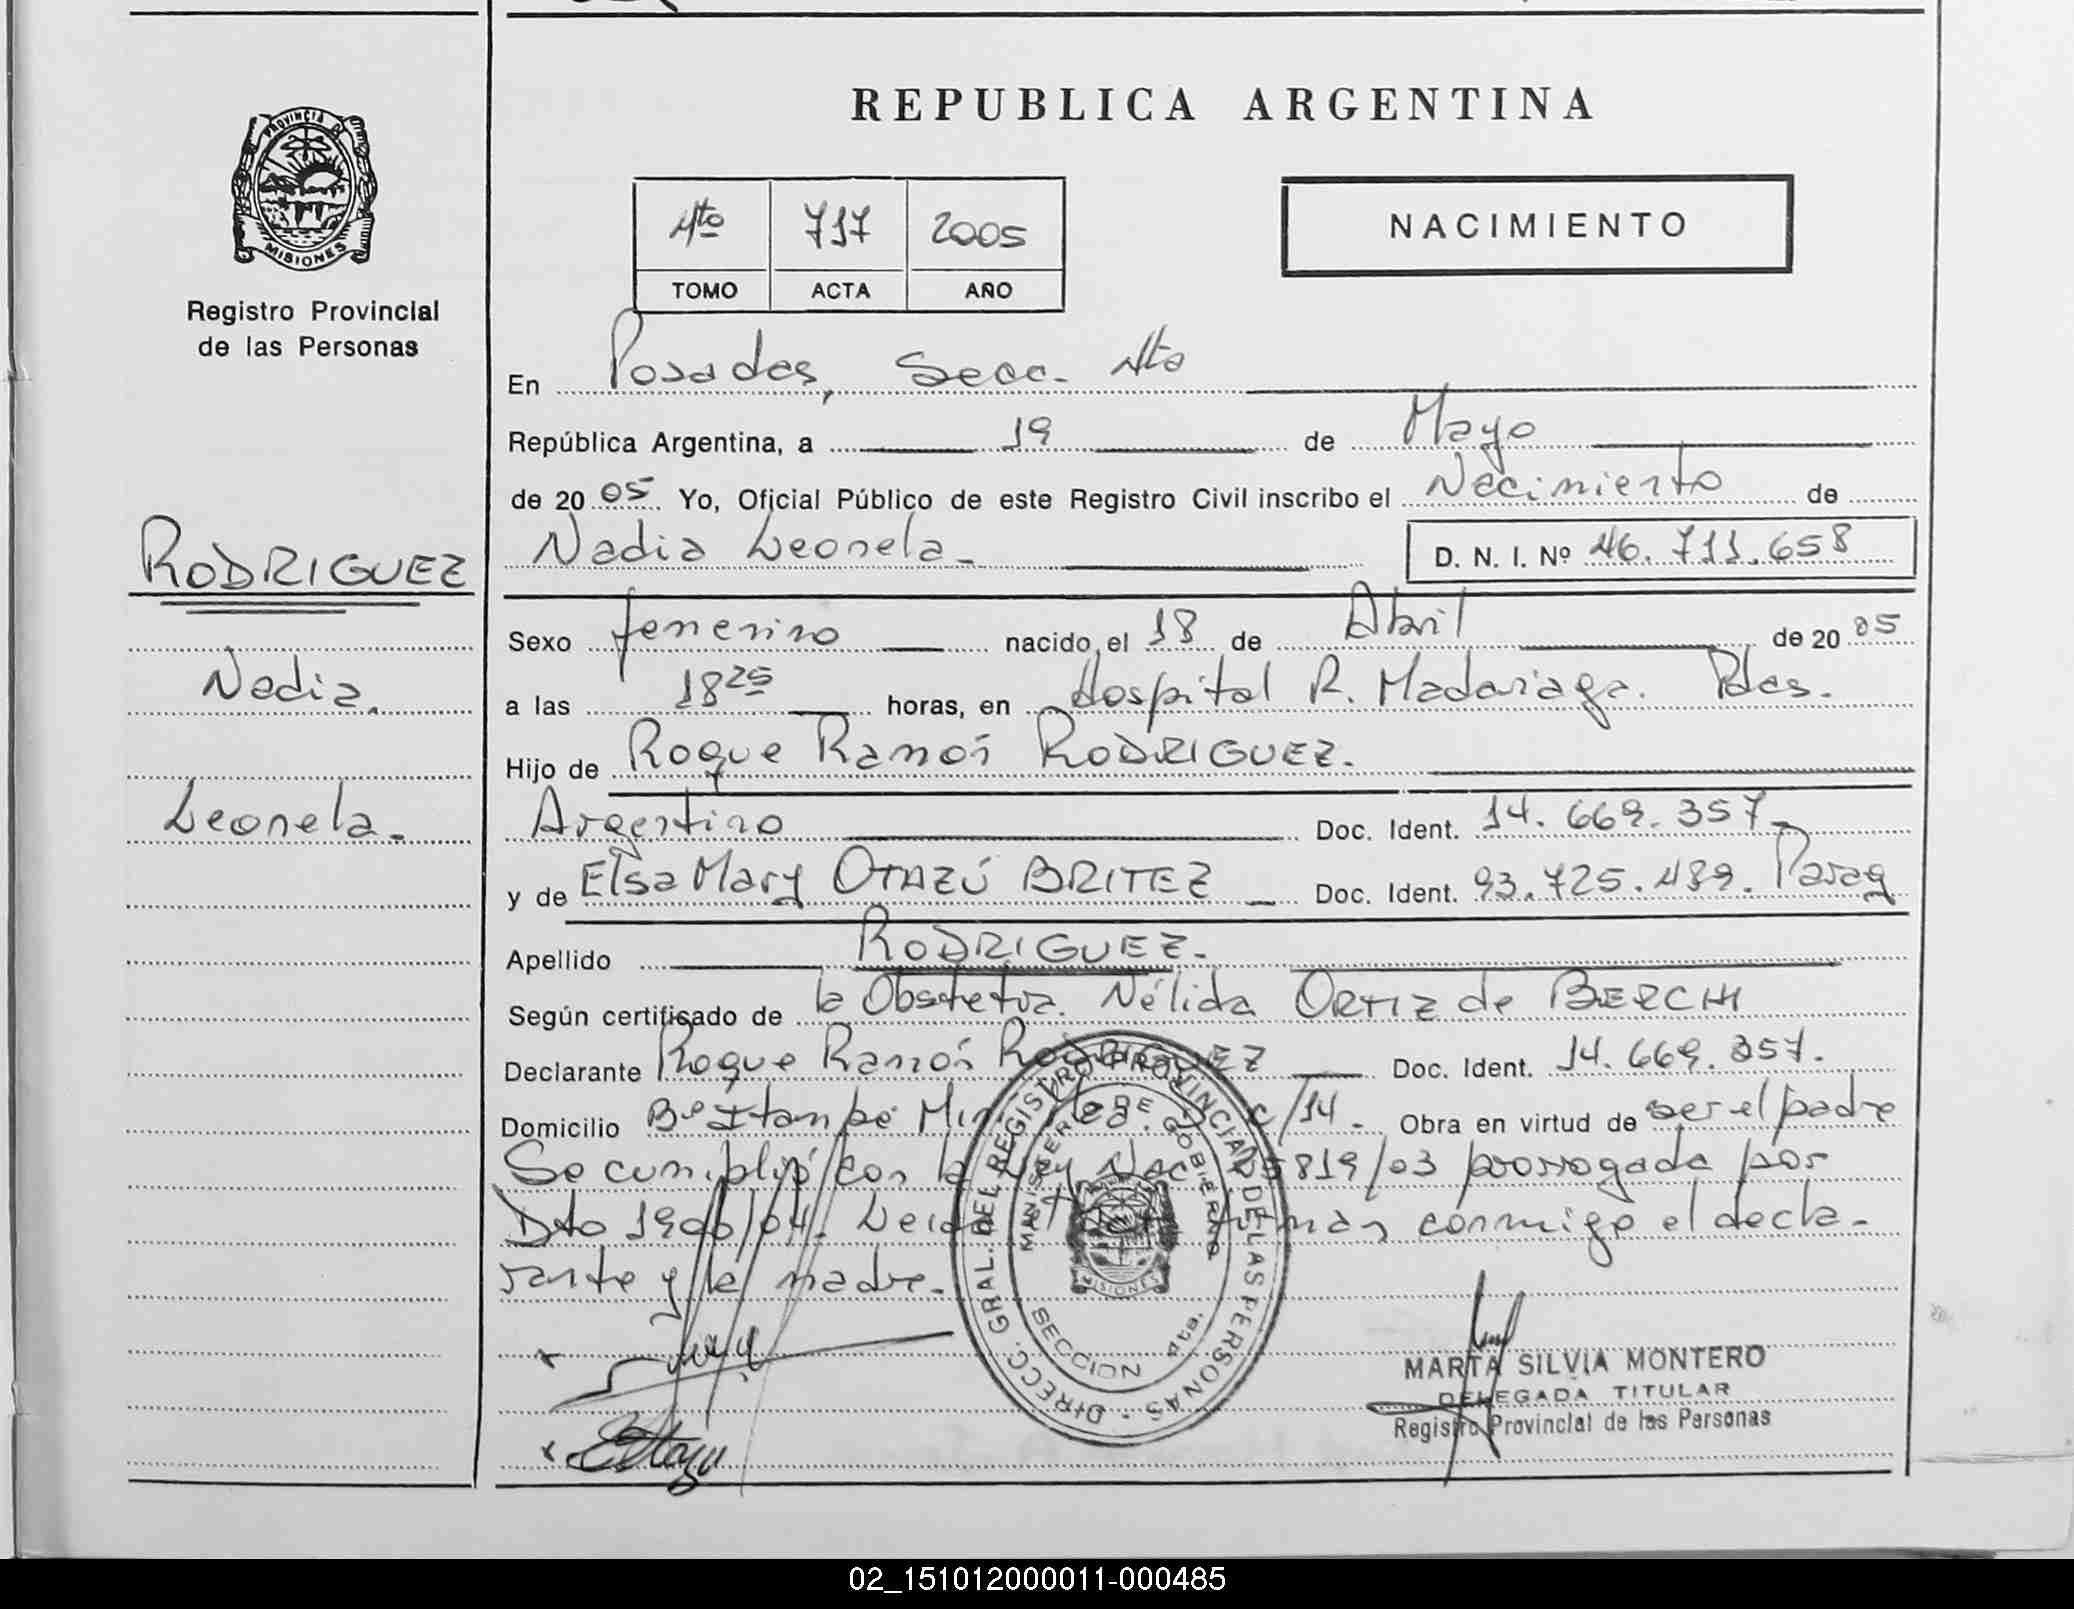 REPUBLICA ARGENTINA
PROVINCIA D
MISIONES
Registro Provincial
de las Personas
4to 717 2005
TOMO ACTA AÑO
NACIMIENTO
En Posadas, Secc. 4to
República Argentina, a 19 de Mayo
de 20 05 Yo, Oficial Público de este Registro Civil inscribo el Nacimiento de
Nadia Leonela.
D. N. I. Nº 46.711.658
RODRIGUEZ
Nadia.
Leonela.
Sexo femenino nacido el 18 de Abril de 20 05
a las 18 25 horas, en Hospital R. Madariaga. Pdas.
Hijo de Roque Ramón RODRIGUEZ.
Argentino Doc. Ident. 14.669.357.
y de Elsa Mary OTAZÚ BRITEZ Doc. Ident. 93.725.489. Parag
Apellido RODRIGUEZ.
Según certificado de la Obstetra. Nélida ORTIZ de BERCHI
Declarante Roque Ramón RODRIGUEZ Doc. Ident. 14.669.357.
Domicilio Bº Itambé Miní c/14. Obra en virtud de ser el padre
Se cumplió con la Ley Nac. 25819/03 prorrogada por
Dto 1906/04. Leida firman conmigo el decla-
rante y la madre.
DIRECC. GRAL. DEL REGISTRO PROVINCIAL DE LAS PERSONAS
MINISTERIO DE GOBIERNO
MISIONES
SECCION 4ta.
MARTA SILVIA MONTERO
DELEGADA TITULAR
Registro Provincial de las Personas
02_151012000011-000485